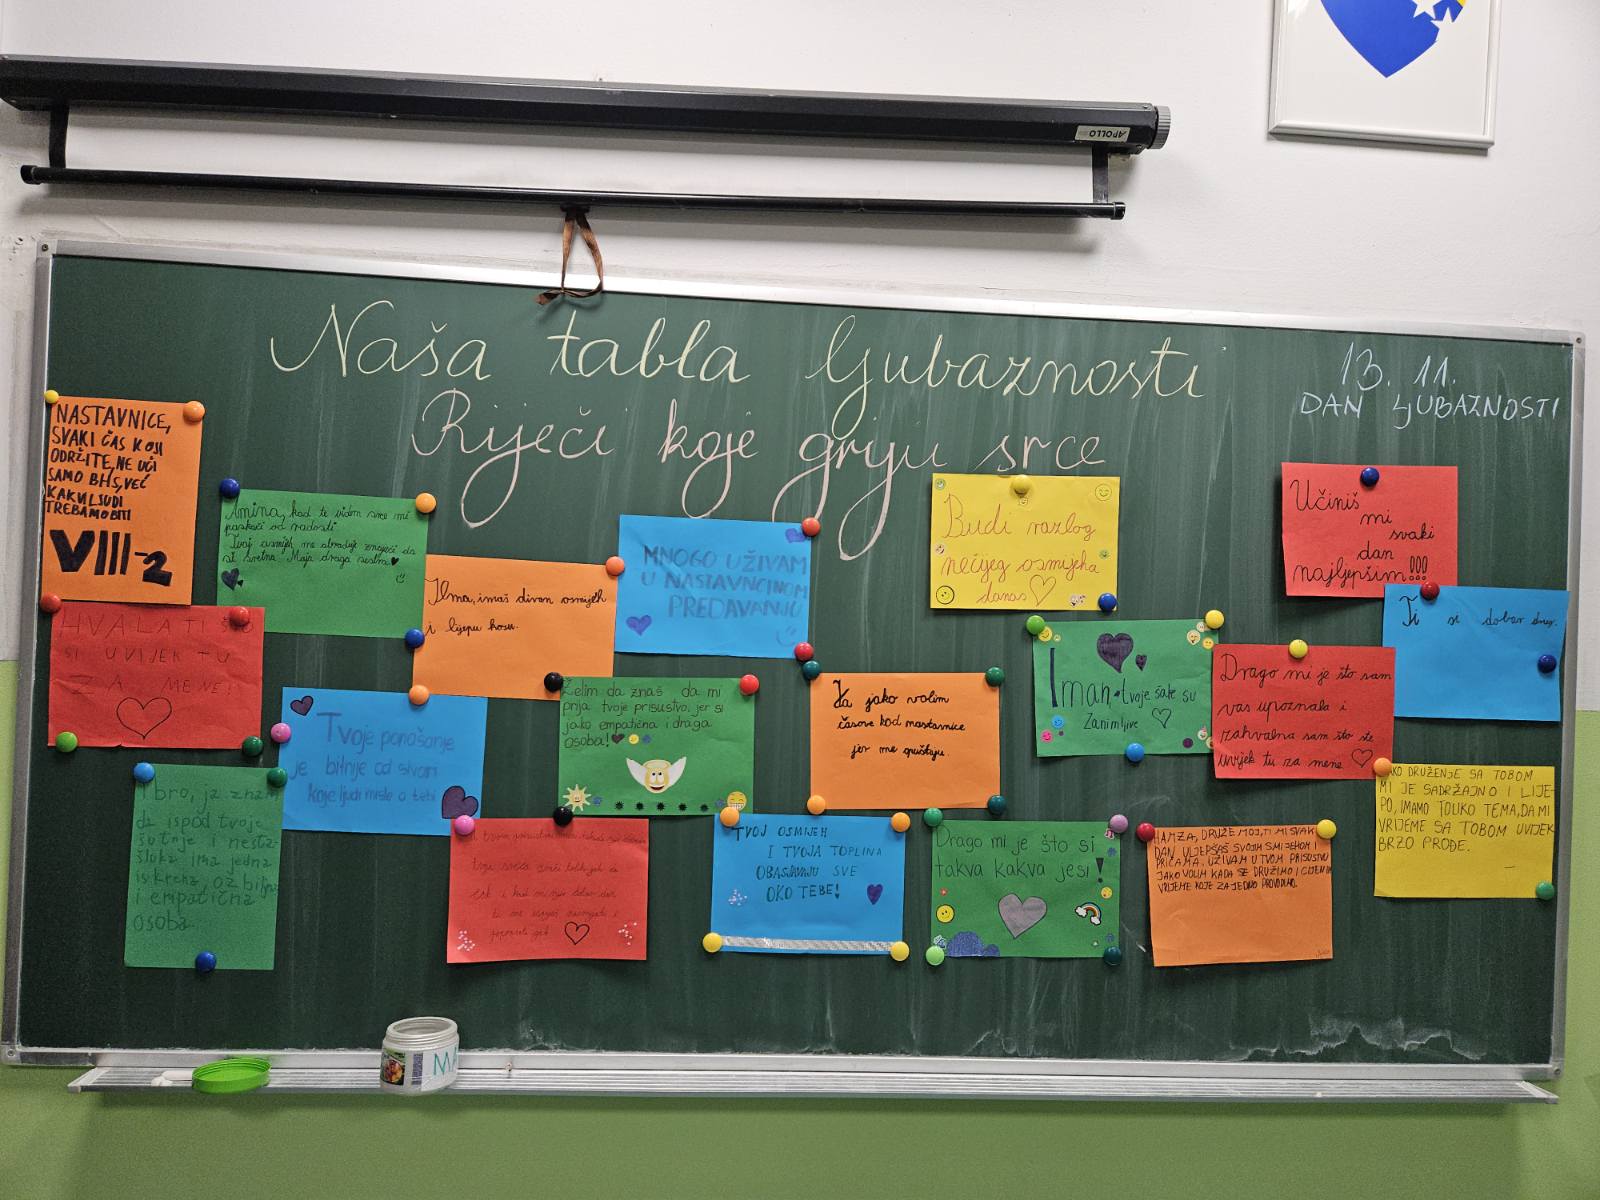 APOLLO
Naša tabla ljubaznosti
Riječi koje griju srce
13. 11.
DAN LJUBAZNOSTI
NASTAVNICE,
SVAKI ČAS KOJI
ODRŽITE, NE UČI
SAMO BHS, VEĆ
KAKVI LJUDI
TREBAMO BITI
VIII-2
Amina, kad te vidim srce mi
poskoči od radosti.
Tvoj osmijeh me obraduje znajući da
si sretna. Moja draga sestra
Ilma, imaš divan osmijeh
i lijepu kosu.
MNOGO UŽIVAM
U NASTAVNCINOM
PREDAVANJU
Budi razlog
nečijeg osmijeha
danas
Učiniš
mi
svaki
dan
najljepšim!!!
Ti si dobar drug.
HVALA TI ŠTO
SI UVIJEK TU
ZA MENE!
Tvoje ponašanje
je bitnije od stvari
koje ljudi misle o tebi
Želim da znaš da mi
prija tvoje prisustvo, jer si
jako empatična i draga
osoba!
Ja jako volim
časove kod nastavnice
jer me opuštaju.
Iman, tvoje šale su
zanimljive
Drago mi je što sam
vas upoznala i
zahvalna sam što ste
uvijek tu za mene
KAKO DRUŽENJE SA TOBOM
MI JE SADRŽAJNO I LIJE-
PO, IMAMO TOLIKO TEMA, DA MI
VRIJEME SA TOBOM UVIJEK
BRZO PROĐE.
Ibro, ja znam
da ispod tvoje
šutnje i nesta-
šluka ima jedna
iskrena, ozbiljna
i empatična
osoba.
TVOJ OSMIJEH
I TVOJA TOPLINA
OBASJAVAJU SVE
OKO TEBE!
Drago mi je što si
takva kakva jesi!
HAMZA, DRUŽE MOJ, TI MI SVAKI
DAN ULJEPŠAŠ SVOJIM SMIJEHOM I
PRIČAMA. UŽIVAM U TVOM PRISUSTVU
JAKO VOLIM KADA SE DRUŽIMO I CIJENIM
VRIJEME KOJE ZAJEDNO PROVODIMO.
MA